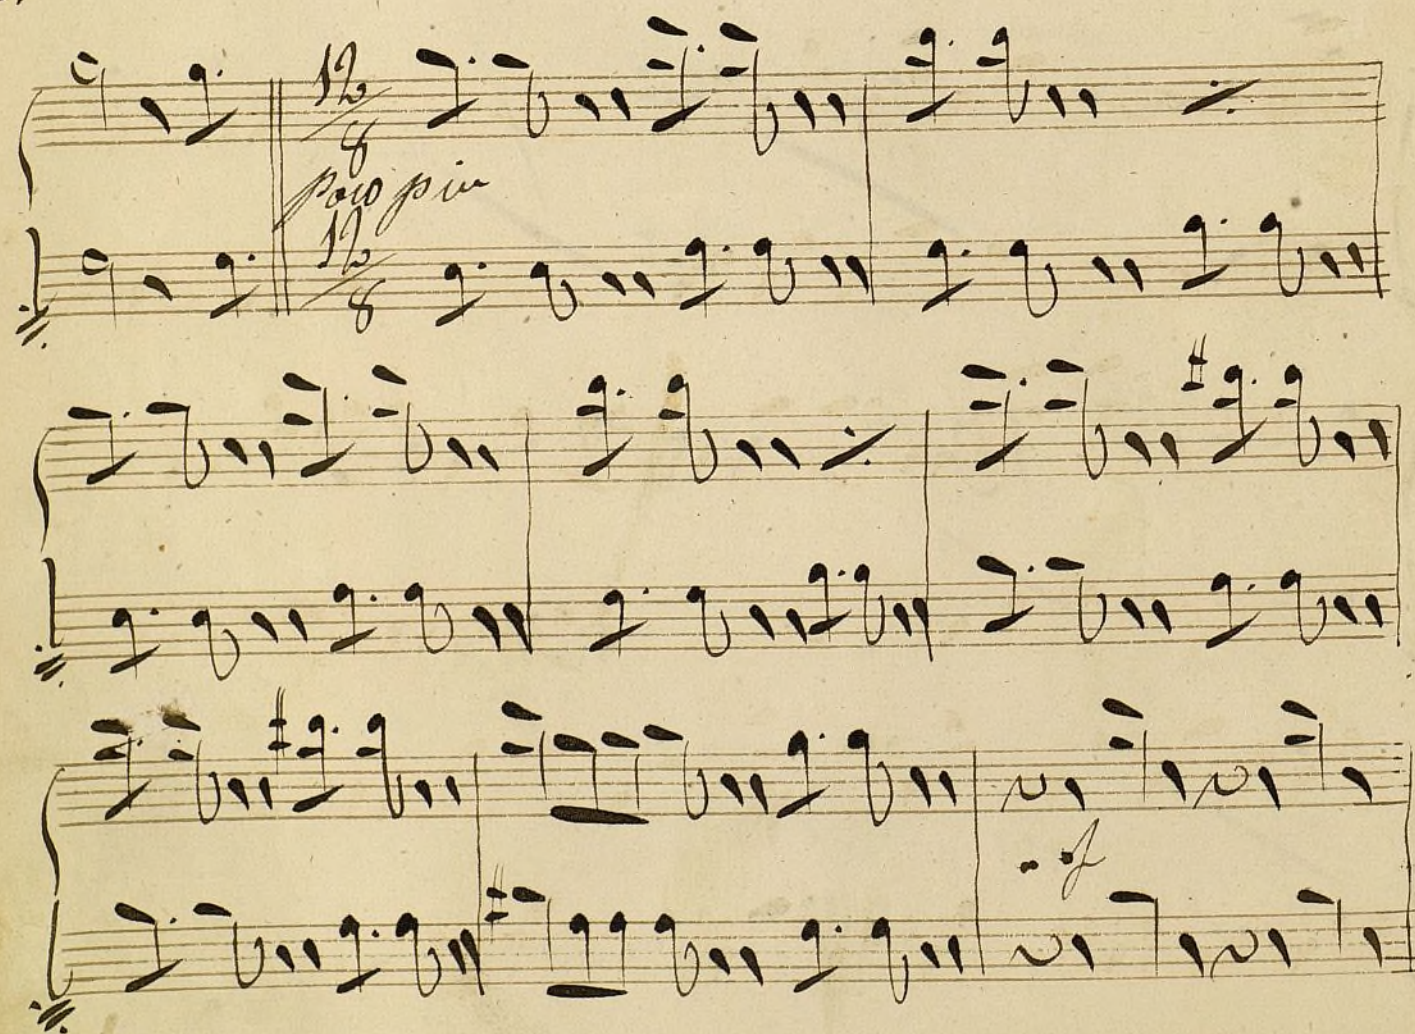 12/8
poco piu
12/8
sf